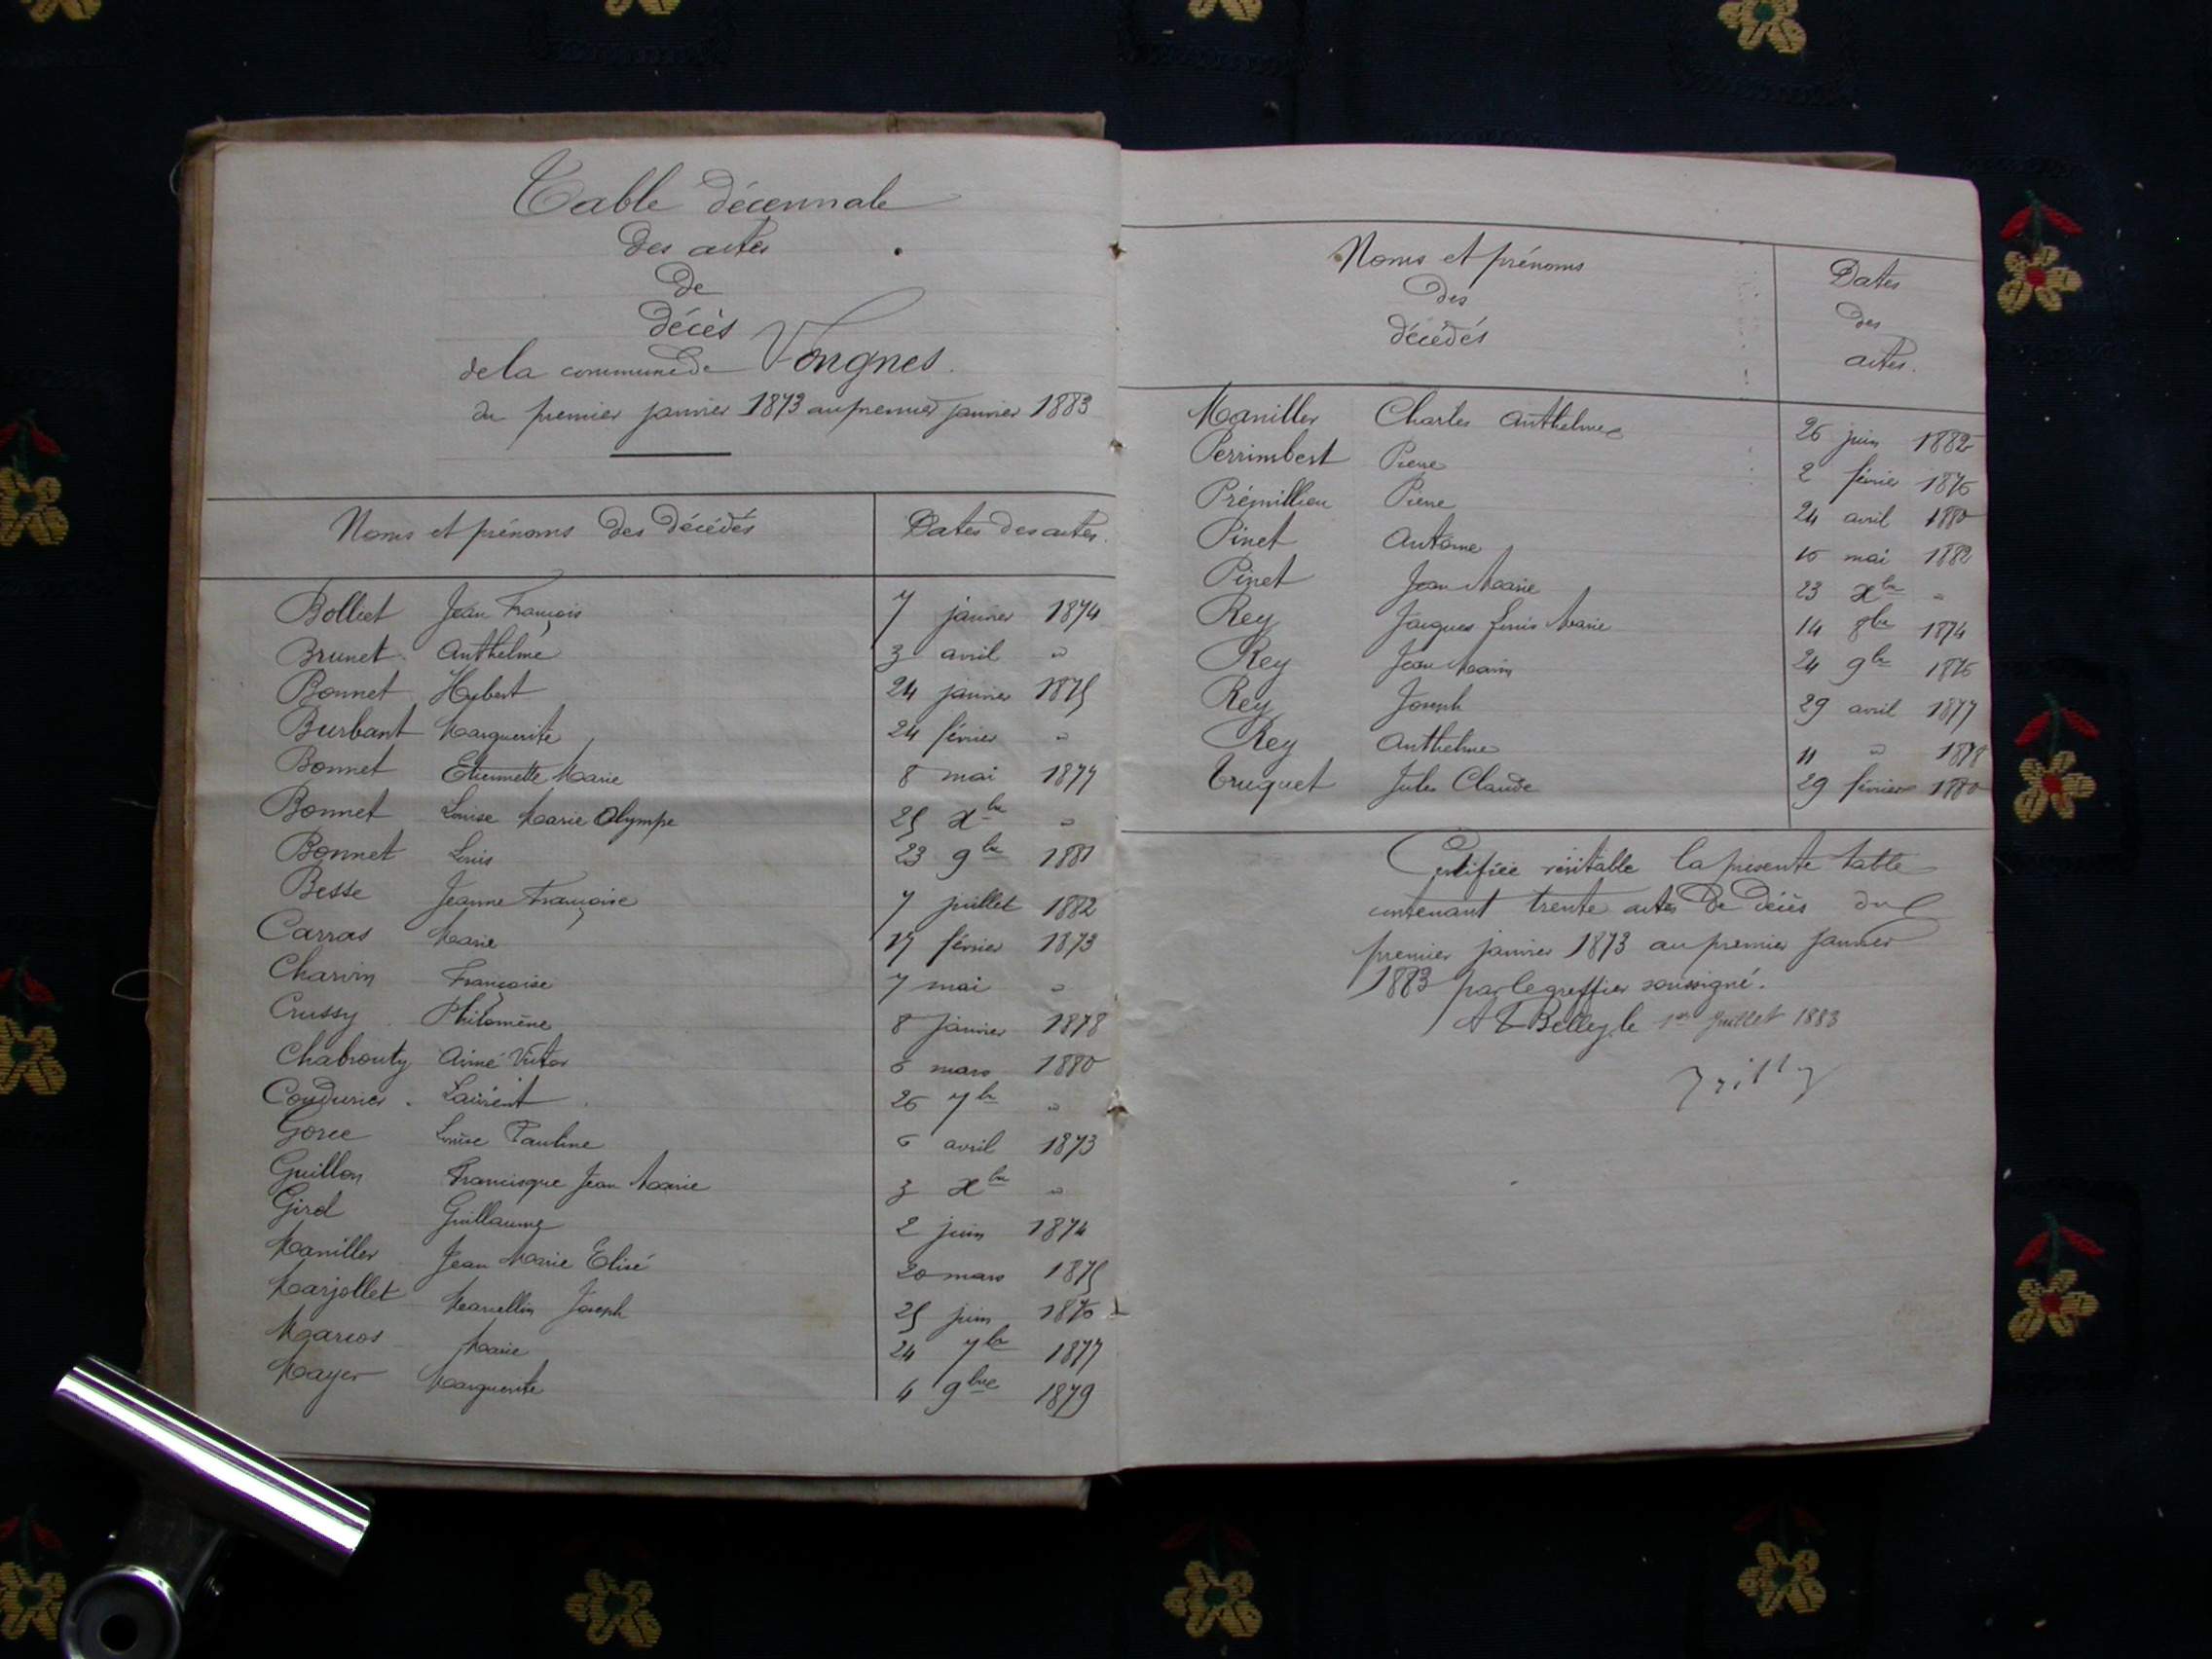 Table décennale
des actes
de
décès
de la commune de Vongnes.
du premier janvier 1873 au premier janvier 1883
Noms et prénoms des décédés Dates des actes.
Bolliet Jean François 7 janvier 1874
Brunet Anthelme 3 avril "
Bonnet Hubert 24 janvier 1875
Burbant Marguerite 24 février "
Bonnet Etiennette Marie 8 mai 1877
Bonnet Louise Marie Olympe 25 Xbre "
Bonnet Louis 23 9bre 1881
Besse Jeanne Françoise 7 juillet 1882
Carras Marie 17 février 1873
Charvin Françoise 7 mai "
Crussy Philomène 8 janvier 1878
Chabouty Aimé Victor 6 mars 1880
Coudurier Laurent 26 7bre "
Goree Louise Pauline 6 avril 1873
Guillon Francisque Jean Marie 3 Xbre "
Girel Guillaume 2 juin 1874
Maniller Jean Marie Elisé 20 mars 1875
Marjollet Marcellin Joseph 25 juin 1876
Marcos Marie 24 7bre 1877
Mayer Marguerite 4 9bre 1879
Noms et prénoms
des
décédés
Dates
des
actes.
Maniller Charles Anthelme 26 juin 1882
Perrimbert Pierre 2 février 1876
Prémillieu Pierre 24 avril 1880
Pinet Antoine 16 mai 1882
Pinet Jean Marie 23 Xbre "
Rey Jacques Louis Marie 14 8bre 1874
Rey Jean Marie 24 9bre 1876
Rey Joseph 29 avril 1877
Rey Anthelme 11 " 1878
Truquet Jules Claude 29 février 1880
Certifiée véritable la présente table
contenant trente actes de décès du
premier janvier 1873 au premier janvier
1883 par le greffier soussigné.
A Belley, le 1er Juillet 1883